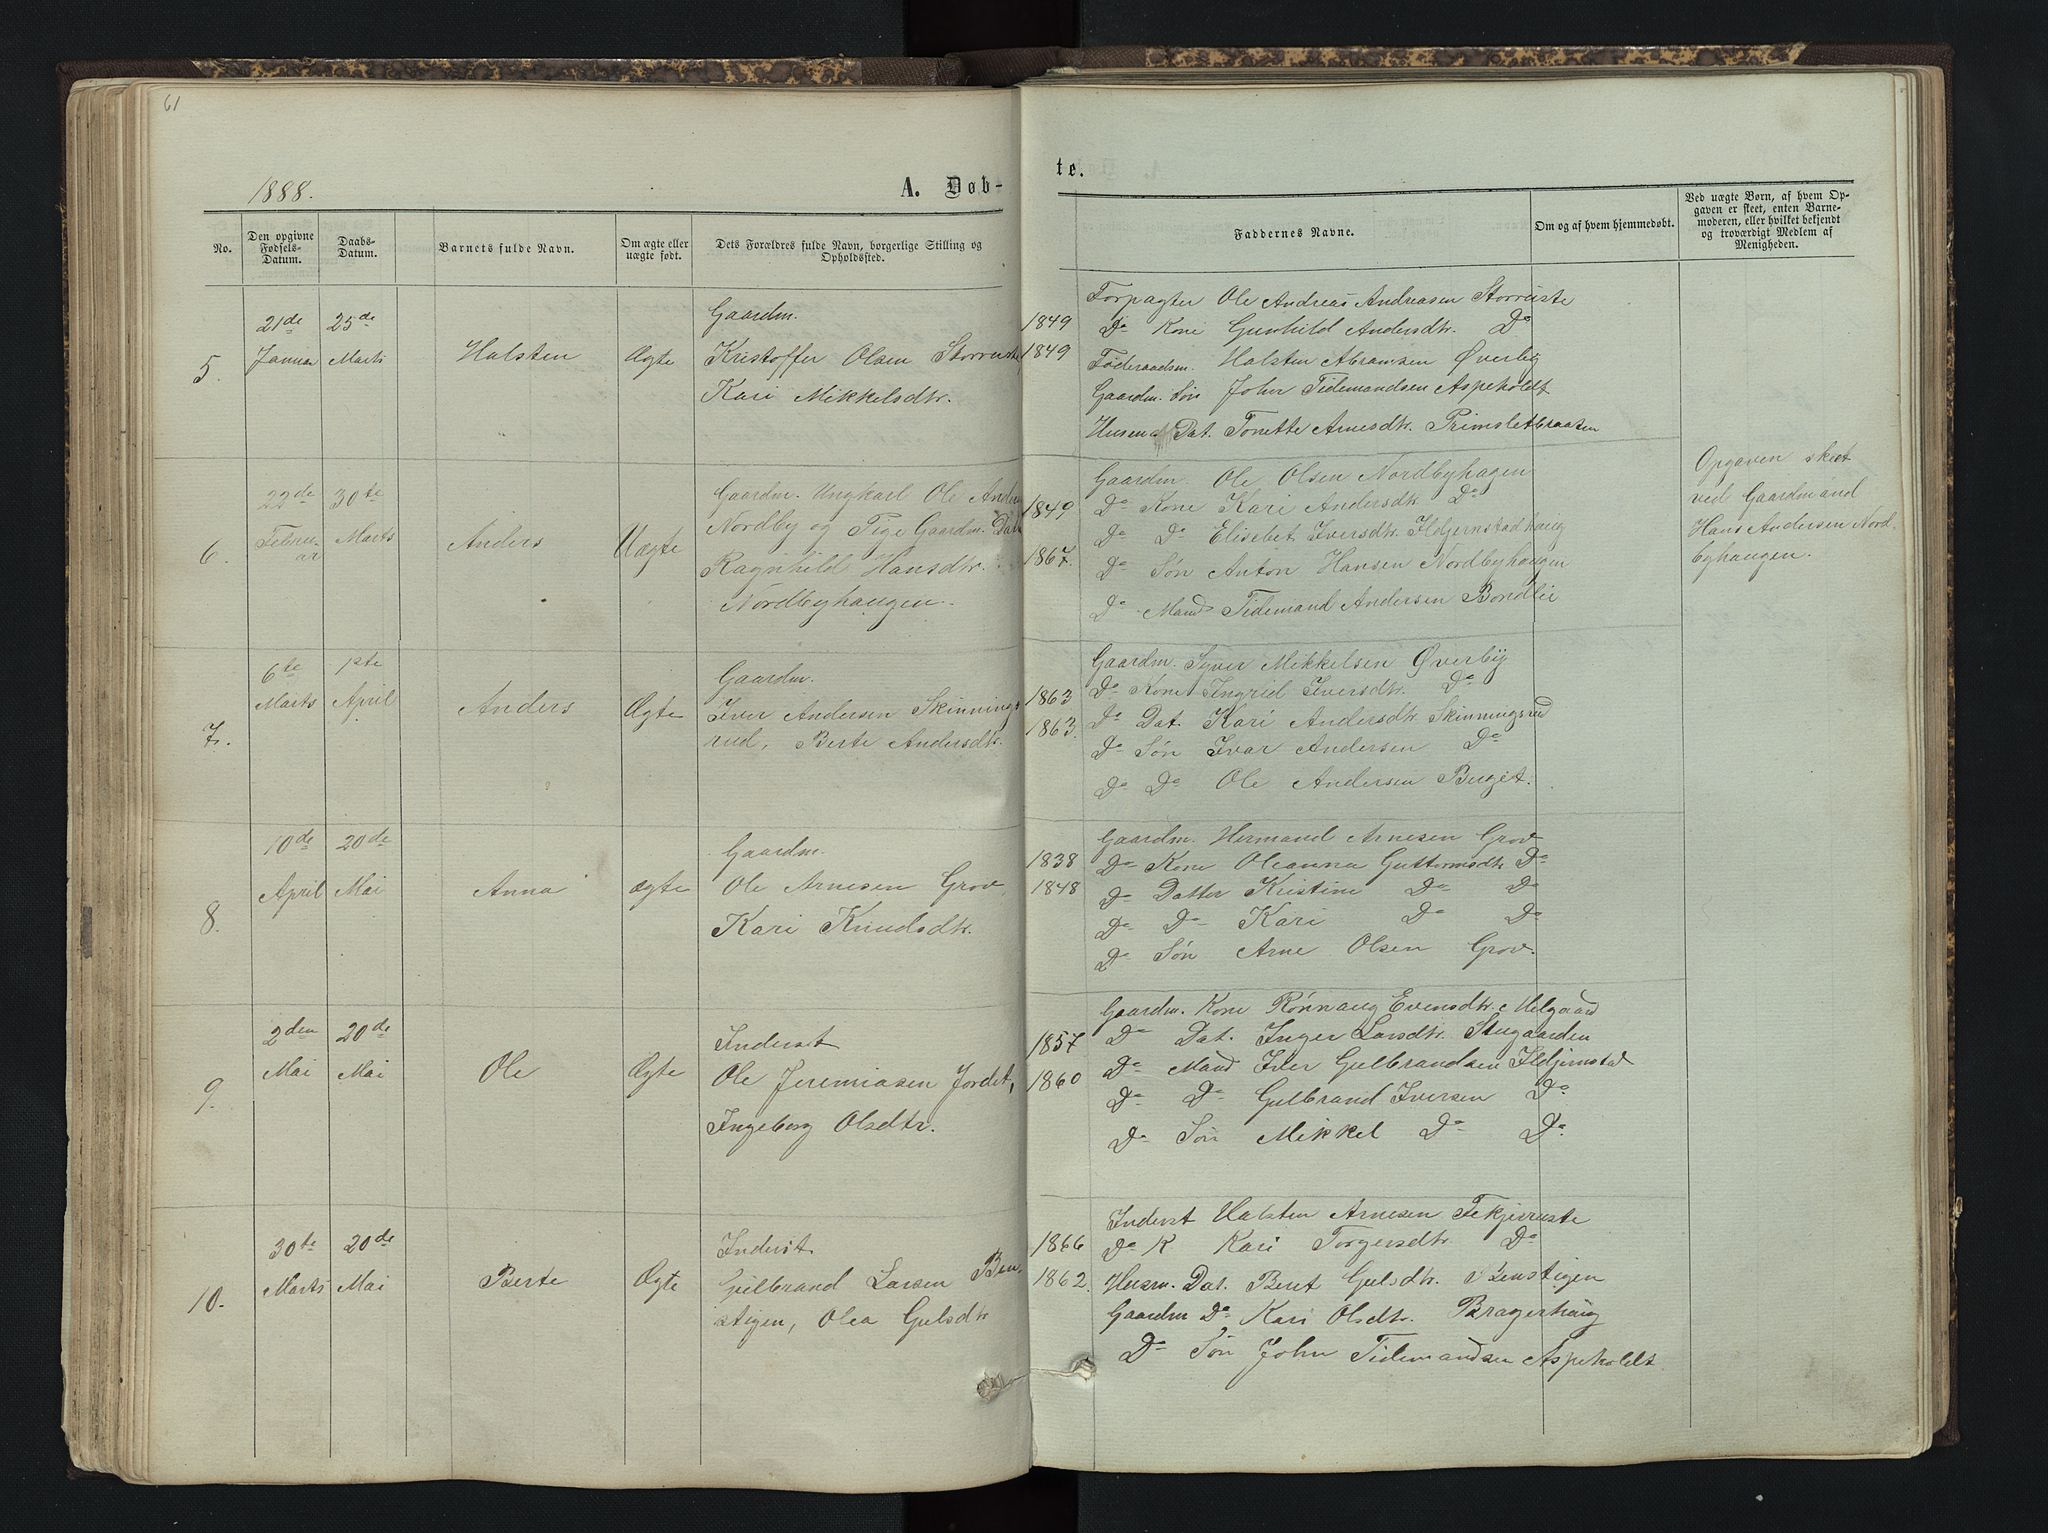 61
1888.
A. Døb-
No.
Den opgivne Fødsels-Datum.
Daabs-Datum.
Barnets fulde Navn.
Om ægte eller uægte født.
Dets Forældres fulde Navn, borgerlige Stilling og Opholdssted.
5.
21de Januar
25de Marts
Halsten
Ægte
Gaardm.
Kristoffer Olsen Storruste
Kari Mikkelsdtr.
6.
22de Februar
30te Marts
Anders
Uægte
Gaardm. Ungkarl Ole Anders
Nordby og Pige Gaardm. Datt
Ragnhild Hansdtr.
Nordbyhaugen.
7.
6te Marts
1ste April
Anders
Ægte
Gaardm.
Iver Andersen Skinnings
rud, Berte Andersdtr.
8.
10de April
20de Mai
Anna
Ægte
Gaardm.
Ole Arnesen Grov
Kari Knudsdtr.
9.
2den Mai
20de Mai
Ole
Ægte
Inderst
Ole Jeremiasen Jordet,
Ingeborg Olsdtr.
10.
30te Marts
20de Mai
Berte
Ægte
Inderst
Gulbrand Larsen Ben
stigen, Olea Gulsdtr
te.
Faddernes Navne.
Om og af hvem hjemmedøbt.
Ved uægte Børn, af hvem Op-
gaven er skeet, enten Barne-
moderen, eller hvilket bekjendt
og troværdigt Medlem af
Menigheden.
Forpagter Ole Andreas Andreasen Storruste
1849 Do Kone Gunhild Andersdtr. Do
1849 Føderaadsm. Halsten Abramsen Øverby
Gaardm. Søn John Tidemandsen Aspeholdt
Husm. Dat. Tonette Arnesdtr. Primsletbraaten
Gaardm. Ole Olsen Nordbyhagen
1849 Do Kone Kari Andersdtr Do
Do Do Elisebet Iversdtr. Ildjernstadhaug
1867. Do Søn Anton Hansen Nordbyhaugen
Do Mand Tidemand Andersen Bondlie
Opgaven skeet
ved Gaardmand
Hans Andersen Nord-
byhaugen.
Gaardm. Syver Mikkelsen Øverby
1863 Do Kone Ingrid Iversdtr. Do
1863. Do Dat. Kari Andersdtr Skinningsrud
Do Søn Ivar Andersen Do
Do Do Ole Andersen Buget.
Gaardm. Hermand Arnesen Grov
1838 Do Kone Oleanna Guttormsdtr. Do
1848 Do Datter Kristine Do Do
Do Do Kari Do Do
Do Søn Arne Olsen Grov.
Gaardm. Kone Rønnaug Evensdtr. Melgaard
1857 Do Dat. Inger Larsdtr. Stugaarden
1860 Do Mand Iver Gulbrandsen Ildjernstad
Do Do Gulbrand Iversen Do
Do Søn Mikkel Do Do
Inderst Halsten Arnesen Tekjeruste
1866 Do K. Kari Torgersdtr. Do
1862. Husm. Dat. Beret Gulsdtr. Benstigen
Gaardm Do Kari Olsdtr. Bragerhaug
Do Søn John Tidemandsen Aspeholdt